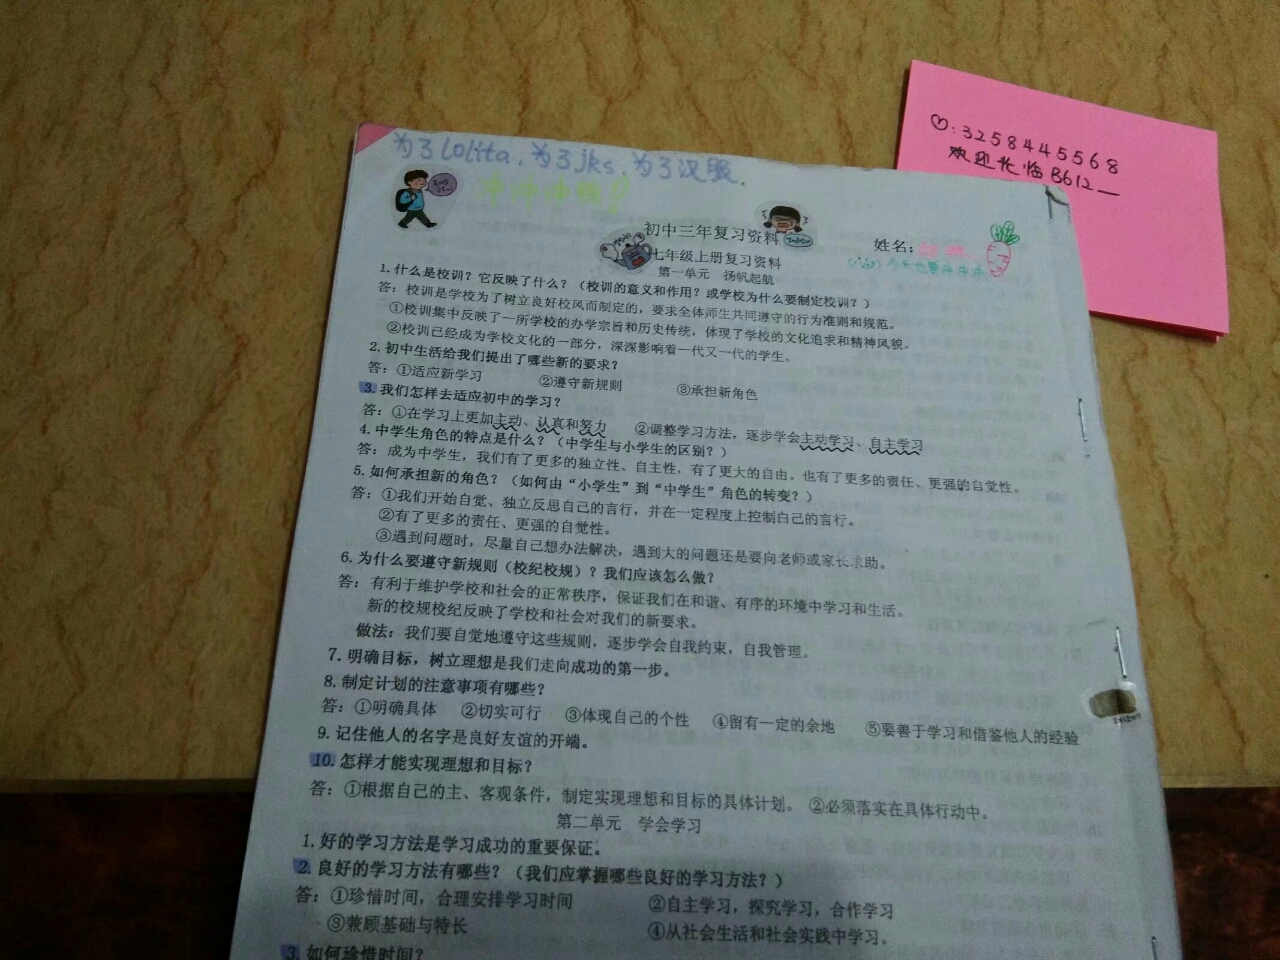 为了lolita，为了jks，为了汉服，
初中三年复习资料
姓名：
七年级上册复习资料
第一单元 扬帆起航
1. 什么是校训？它反映了什么？（校训的意义和作用？或学校为什么要制定校训？）
答：校训是学校为了树立良好校风而制定的，要求全体师生共同遵守的行为准则和规范。
①校训集中反映了一所学校的办学宗旨和历史传统，体现了学校的文化追求和精神风貌。
②校训已经成为学校文化的一部分，深深影响着一代又一代的学生。
2. 初中生活给我们提出了哪些新的要求？
答：①适应新学习 ②遵守新规则 ③承担新角色
3. 我们怎样去适应初中的学习？
答：①在学习上更加主动、认真和努力 ②调整学习方法，逐步学会主动学习、自主学习
4. 中学生角色的特点是什么？（中学生与小学生的区别？）
答：成为中学生，我们有了更多的独立性、自主性，有了更大的自由。也有了更多的责任、更强的自觉性。
5. 如何承担新的角色？（如何由“小学生”到“中学生”角色的转变？）
答：①我们开始自觉、独立反思自己的言行，并在一定程度上控制自己的言行。
②有了更多的责任、更强的自觉性。
③遇到问题时，尽量自己想办法解决，遇到大的问题还是要向老师或家长求助。
6. 为什么要遵守新规则（校纪校规）？我们应该怎么做？
答：有利于维护学校和社会的正常秩序，保证我们在和谐、有序的环境中学习和生活。
新的校规校纪反映了学校和社会对我们的新要求。
做法：我们要自觉地遵守这些规则，逐步学会自我约束，自我管理。
7. 明确目标，树立理想是我们走向成功的第一步。
8. 制定计划的注意事项有哪些？
答：①明确具体 ②切实可行 ③体现自己的个性 ④留有一定的余地 ⑤要善于学习和借鉴他人的经验
9. 记住他人的名字是良好友谊的开端。
10. 怎样才能实现理想和目标？
答：①根据自己的主、客观条件，制定实现理想和目标的具体计划。 ②必须落实在具体行动中。
第二单元 学会学习
1. 好的学习方法是学习成功的重要保证。
2. 良好的学习方法有哪些？（我们应掌握哪些良好的学习方法？）
答：①珍惜时间，合理安排学习时间 ②自主学习，探究学习，合作学习
③兼顾基础与特长 ④从社会生活和社会实践中学习。
3. 如何珍惜时间？
：3258445568
欢迎光临B612